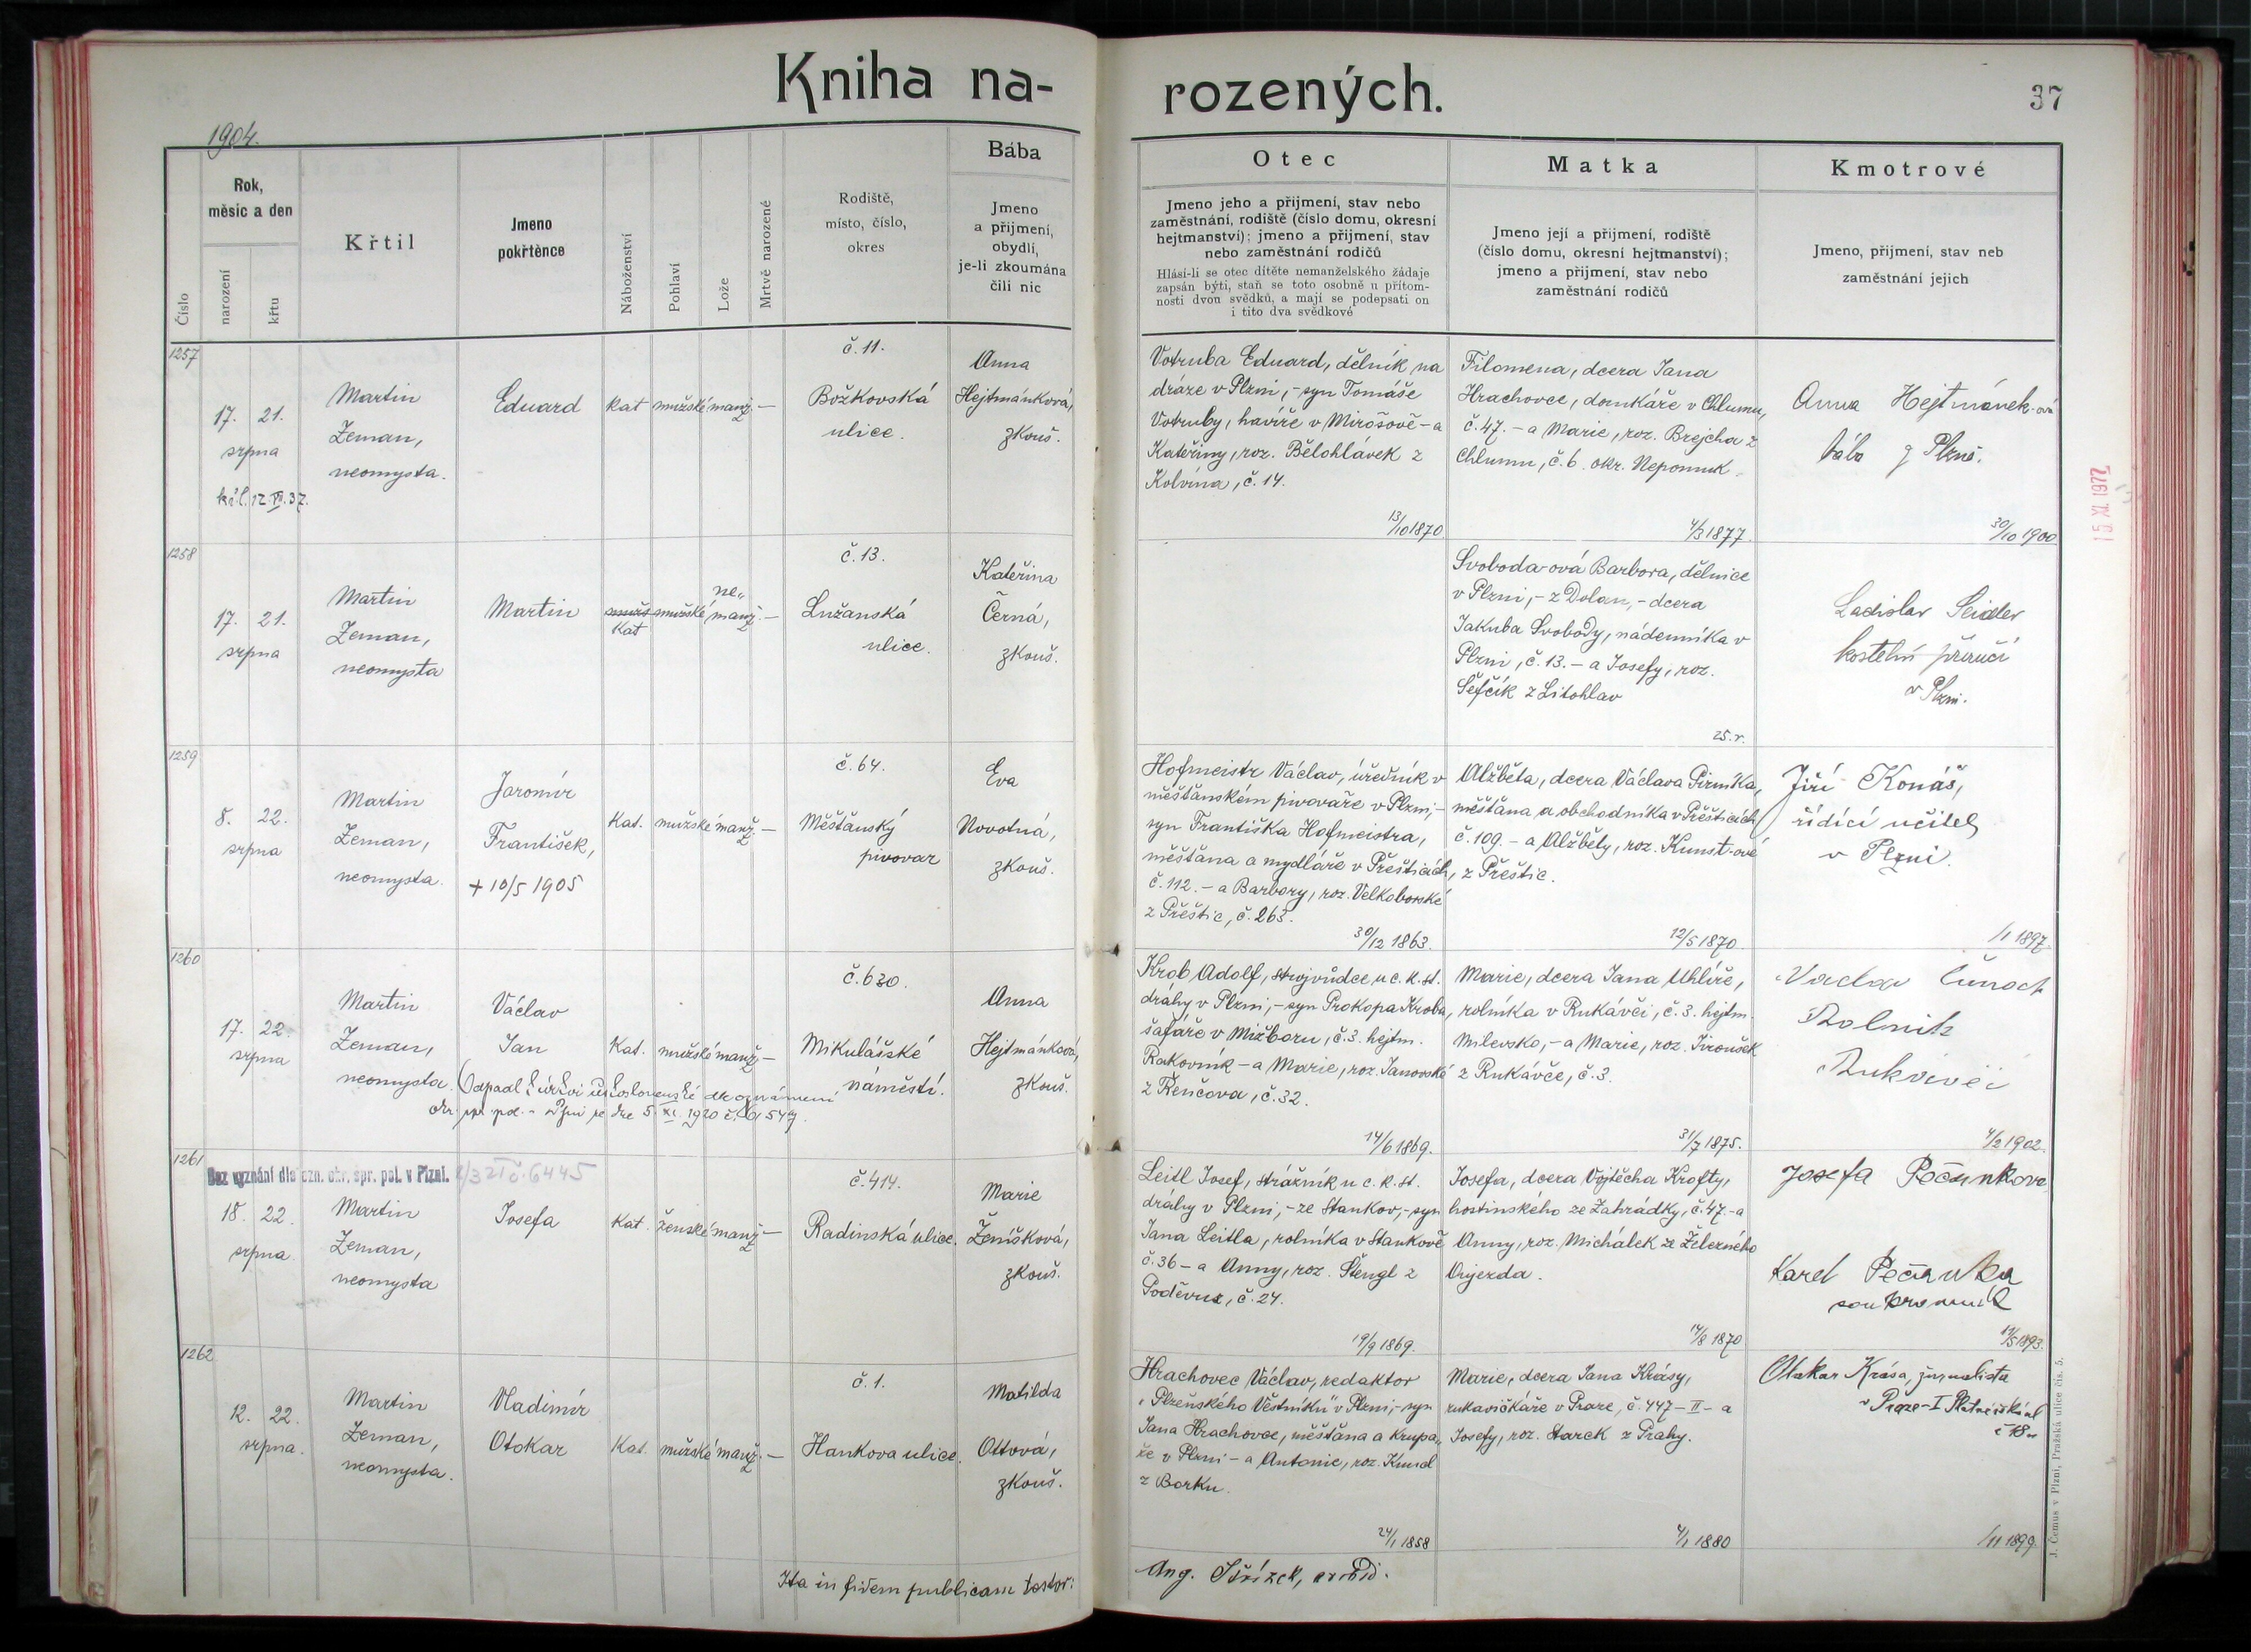 Kniha na-
rozených.
37
1904.
Číslo
Rok,
měsíc a den
narození
křtu
Křtil
Jmeno
pokřtěnce
Náboženství
Pohlaví
Lože
Mrtvě narozené
Rodiště,
místo, číslo,
okres
Bába
Jmeno
a přijmení,
obydlí,
je-li zkoumána
čili nic
Otec
Jmeno jeho a přijmení, stav nebo
zaměstnání, rodiště (číslo domu, okresní
hejtmanství); jmeno a přijmení, stav
nebo zaměstnání rodičů
Hlásí-li se otec dítěte nemanželského žádaje
zapsán býti, staň se toto osobně u přítom-
nosti dvou svědků, a mají se podepsati on
i tito dva svědkové
Matka
Jmeno její a přijmení, rodiště
(číslo domu, okresní hejtmanství);
jmeno a přijmení, stav nebo
zaměstnání rodičů
Kmotrové
Jmeno, přijmení, stav neb
zaměstnání jejich
1257
17. 21.
srpna
Martin
Zeman,
neomysta.
Eduard
kat
mužské
manž.
—
č. 11.
Božkovská
ulice.
Anna
Hejtmánková,
zkouš.
Votruba Eduard, dělník na
dráze v Plzni, - syn Tomáše
Votruby, havíře v Mirošově - a
Kateřiny, roz. Bělohlávek z
Kolvína, č. 14.
13/10 1870
Filomena, dcera Jana
Hrachovce, domkáře v Chlumu,
č. 47. - a Marie, roz. Brejcha z
Chlumu, č. 6. okr. Nepomuk.
4/3 1877
Anna Hejtmánek-ová
bába z Plzně.
30/10 1900
15 XI. 1977
1258
17. 21.
srpna
Martin
Zeman,
neomysta
Martin
kat
mužské
ne„
manž.
—
č. 13.
Lužanská
ulice.
Kateřina
Černá,
zkouš.
Svoboda-ová Barbora, dělnice
v Plzni, - z Dolan, - dcera
Jakuba Svobody, nádenníka v
Plzni, č. 13. - a Josefy, roz.
Šefčík z Litohlav
25. r.
Ladislav Seidler
kostelní
v Plzni.
1259
8. 22.
srpna
Martin
Zeman,
neomysta.
Jaromír
František,
+ 10/5 1905
Kat.
mužské
manž.
—
č. 64.
Měšťanský
pivovar
Eva
Novotná,
zkouš.
Hofmeistr Václav, úředník v
měšťanském pivováře v Plzni, -
syn Františka Hofmeistra,
měšťana a mydláře v Přešticích,
č. 112. - a Barbory, roz. Velkoborské
z Přeštic, č. 263.
30/12 1863.
Alžběta, dcera Václava Pirníka,
měšťana a obchodníka v Přešticích
č. 109. - a Alžběty, roz. Kunst-ové
z Přeštic.
12/5 1870
Jiří Konáš,
řídící učitel
v Plzni.
1/1 1897
1260
17. 22.
srpna
Martin
Zeman,
neomysta.
Václav
Jan
Kat.
mužské
manž.
—
č. 630.
Mikulášské
náměstí.
Anna
Hejtmánková,
zkouš.
Odpadl k církvi československé dle oznámení
okr. spr. pol. v Plzni ze dne 5. XI. 1920 č.
Krob Adolf, strojvůdce u c. k. st.
dráhy v Plzni, - syn Prokopa Kroba,
šafáře v Mižboru, č. 3. hejtm.
Rakovník - a Marie, roz. Janovské
z Řenčova, č. 32.
14/6 1869.
Marie, dcera Jana Uhlíře,
rolníka v Rukávči, č. 3. hejtm.
Milevsko, - a Marie, roz. Jiroušek
z Rukávče, č. 3.
31/7 1875.
Rolník
4/2 1902.
1261
Bez vyznání dle ozn. okr. spr. pol. v Plzni.
6445
18. 22.
srpna
Martin
Zeman,
neomysta
Josefa
Kat.
ženské
manž.
—
č. 414.
Radinská ulice.
Marie
Žemíšková,
zkouš.
Leitl Josef, strážník u c. k. st.
dráhy v Plzni, - ze Stankov, - syn
Jana Leitla, rolníka v Stankově
č. 36 - a Anny, roz. Štengl z
Poděvus, č. 24.
19/9 1869.
Josefa, dcera Vojtěcha Krofty,
hostinského ze Zahrádky, č. 47. - a
Anny, roz. Michálek ze Železného
Újezda.
14/8 1870
Josefa Pečánková
Karel Pečánka
soukromník
1893.
1262
12. 22.
srpna.
Martin
Zeman,
neomysta.
Vladimír
Otokar
Kat.
mužské
manž.
—
č. 1.
Hankova ulice.
Matilda
Ottová,
zkouš.
Hrachovec Václav, redaktor
„Plzeňského Věstníku" v Plzni, - syn
Jana Hrachovce, měšťana a krupa„
ře v Plzni - a Antonie, roz. Kund
z Borku.
24/1 1858
Marie, dcera Jana Krásy,
rukavičkáře v Praze, č. 447-II - a
Josefy, roz. Starck z Prahy.
4/1 1880
Otakar Krása, žurnalista
v Praze-I
1/11 1899.
Ita in fidem publicam testor:
Ang. Střízek, arcid.
J. Čemus v Plzni, Pražská ulice čís. 5.